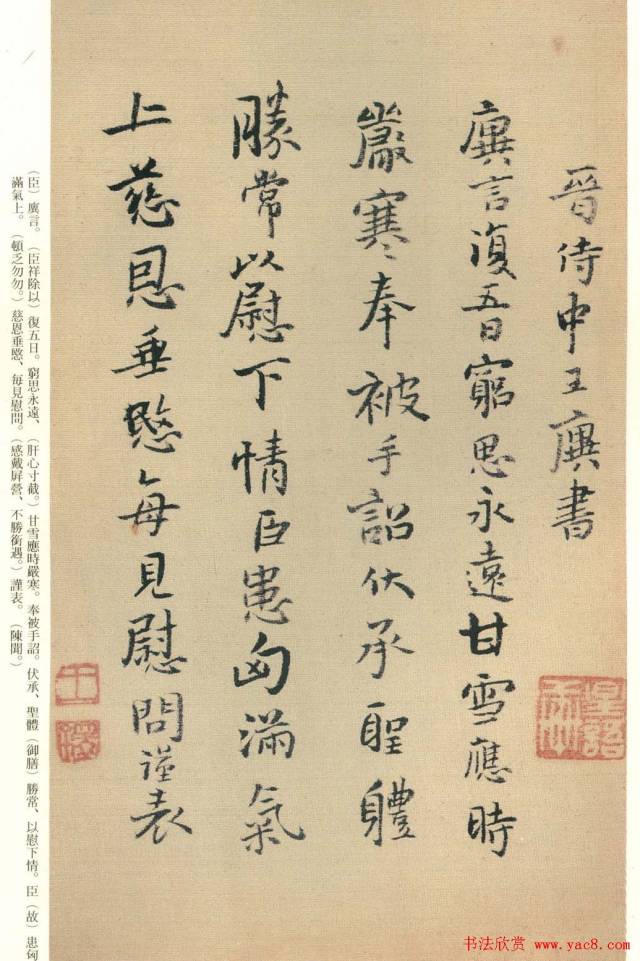 晉侍中王廙書
廙言復五日窮思永遠甘雪應時
嚴寒奉被手詔伏承聖體
勝常以慰下情臣患匈滿氣
上慈恩垂愍每見慰問謹表
（臣）廙言。（臣祥除以）復五日。窮思永遠、（肝心寸截。）甘雪應時嚴寒。奉被手詔。伏承、聖體（御膳）勝常、以慰下情。臣（故）患匈
滿氣上。（頓乏勿勿。）慈恩垂愍、每見慰問。（感戴屏營、不勝銜遇。）謹表。（陳聞。）
书法欣赏 www.yac8.com